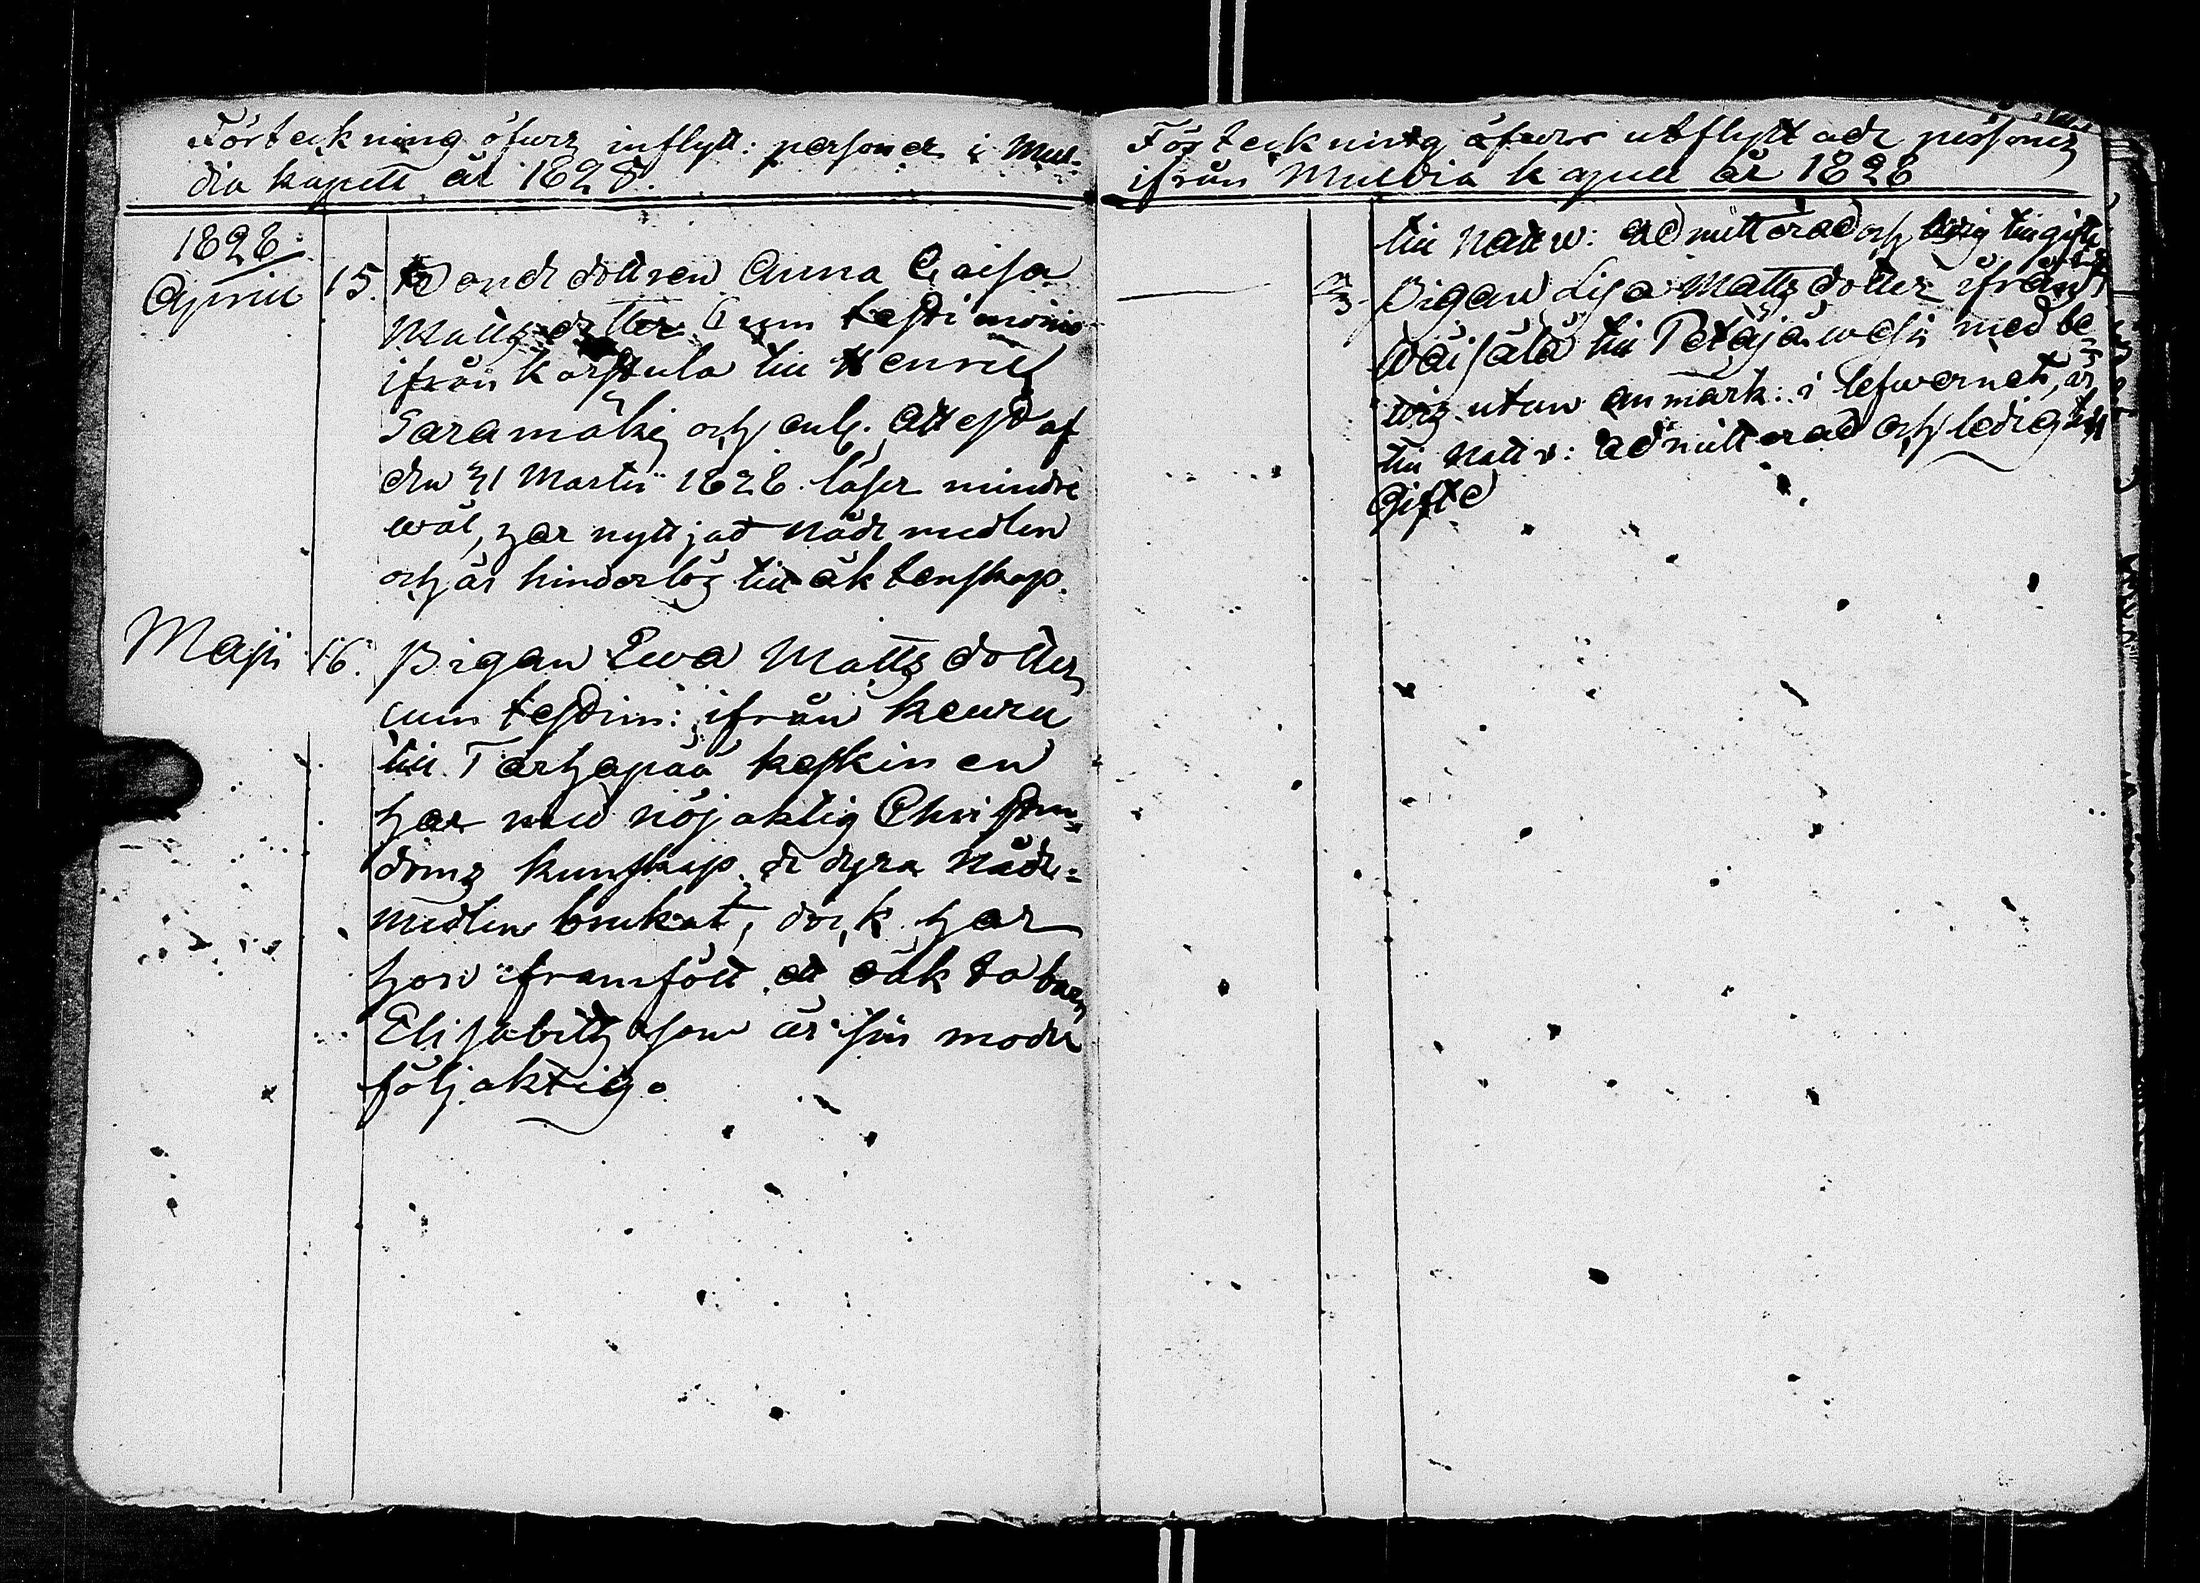 Förteckning öfwer inflytt: personer i Mul-
dia kapell år 1828.
1828.
April 15. Bondedottren Anna Caisa
Mattsdotter Cum testimonio
ifrån Karstula till Henric
Saramäki och enl. Attest af
den 31 Martii 1828 läser mindre
wäl, har nyttjat nådemedlen
och är hinderlös till äktenskap.
Maji 16. Pigan Ewa Mattsdotter
cum testim: ifrån Keuru
till Tarhapää Keskinen
har med nöjaktig Christen-
doms kunskap de dyra Nåde-
medlen brukat, dock har
hon framfödt ett oäkta barn
Elisabeth som är sin moder
följaktig.
Förteckning öfwer utflyttade personer
ifrån Muldia kapell år 1828
till Nattw: admitterad och ledig till gifte
Pigan Lisa Mattsdotter ifrån
Wäisälä till Petäjäwesi med be-
wis utan anmärk: i lefwernet, är
till Nattv: admitterad och ledig till
Gifte